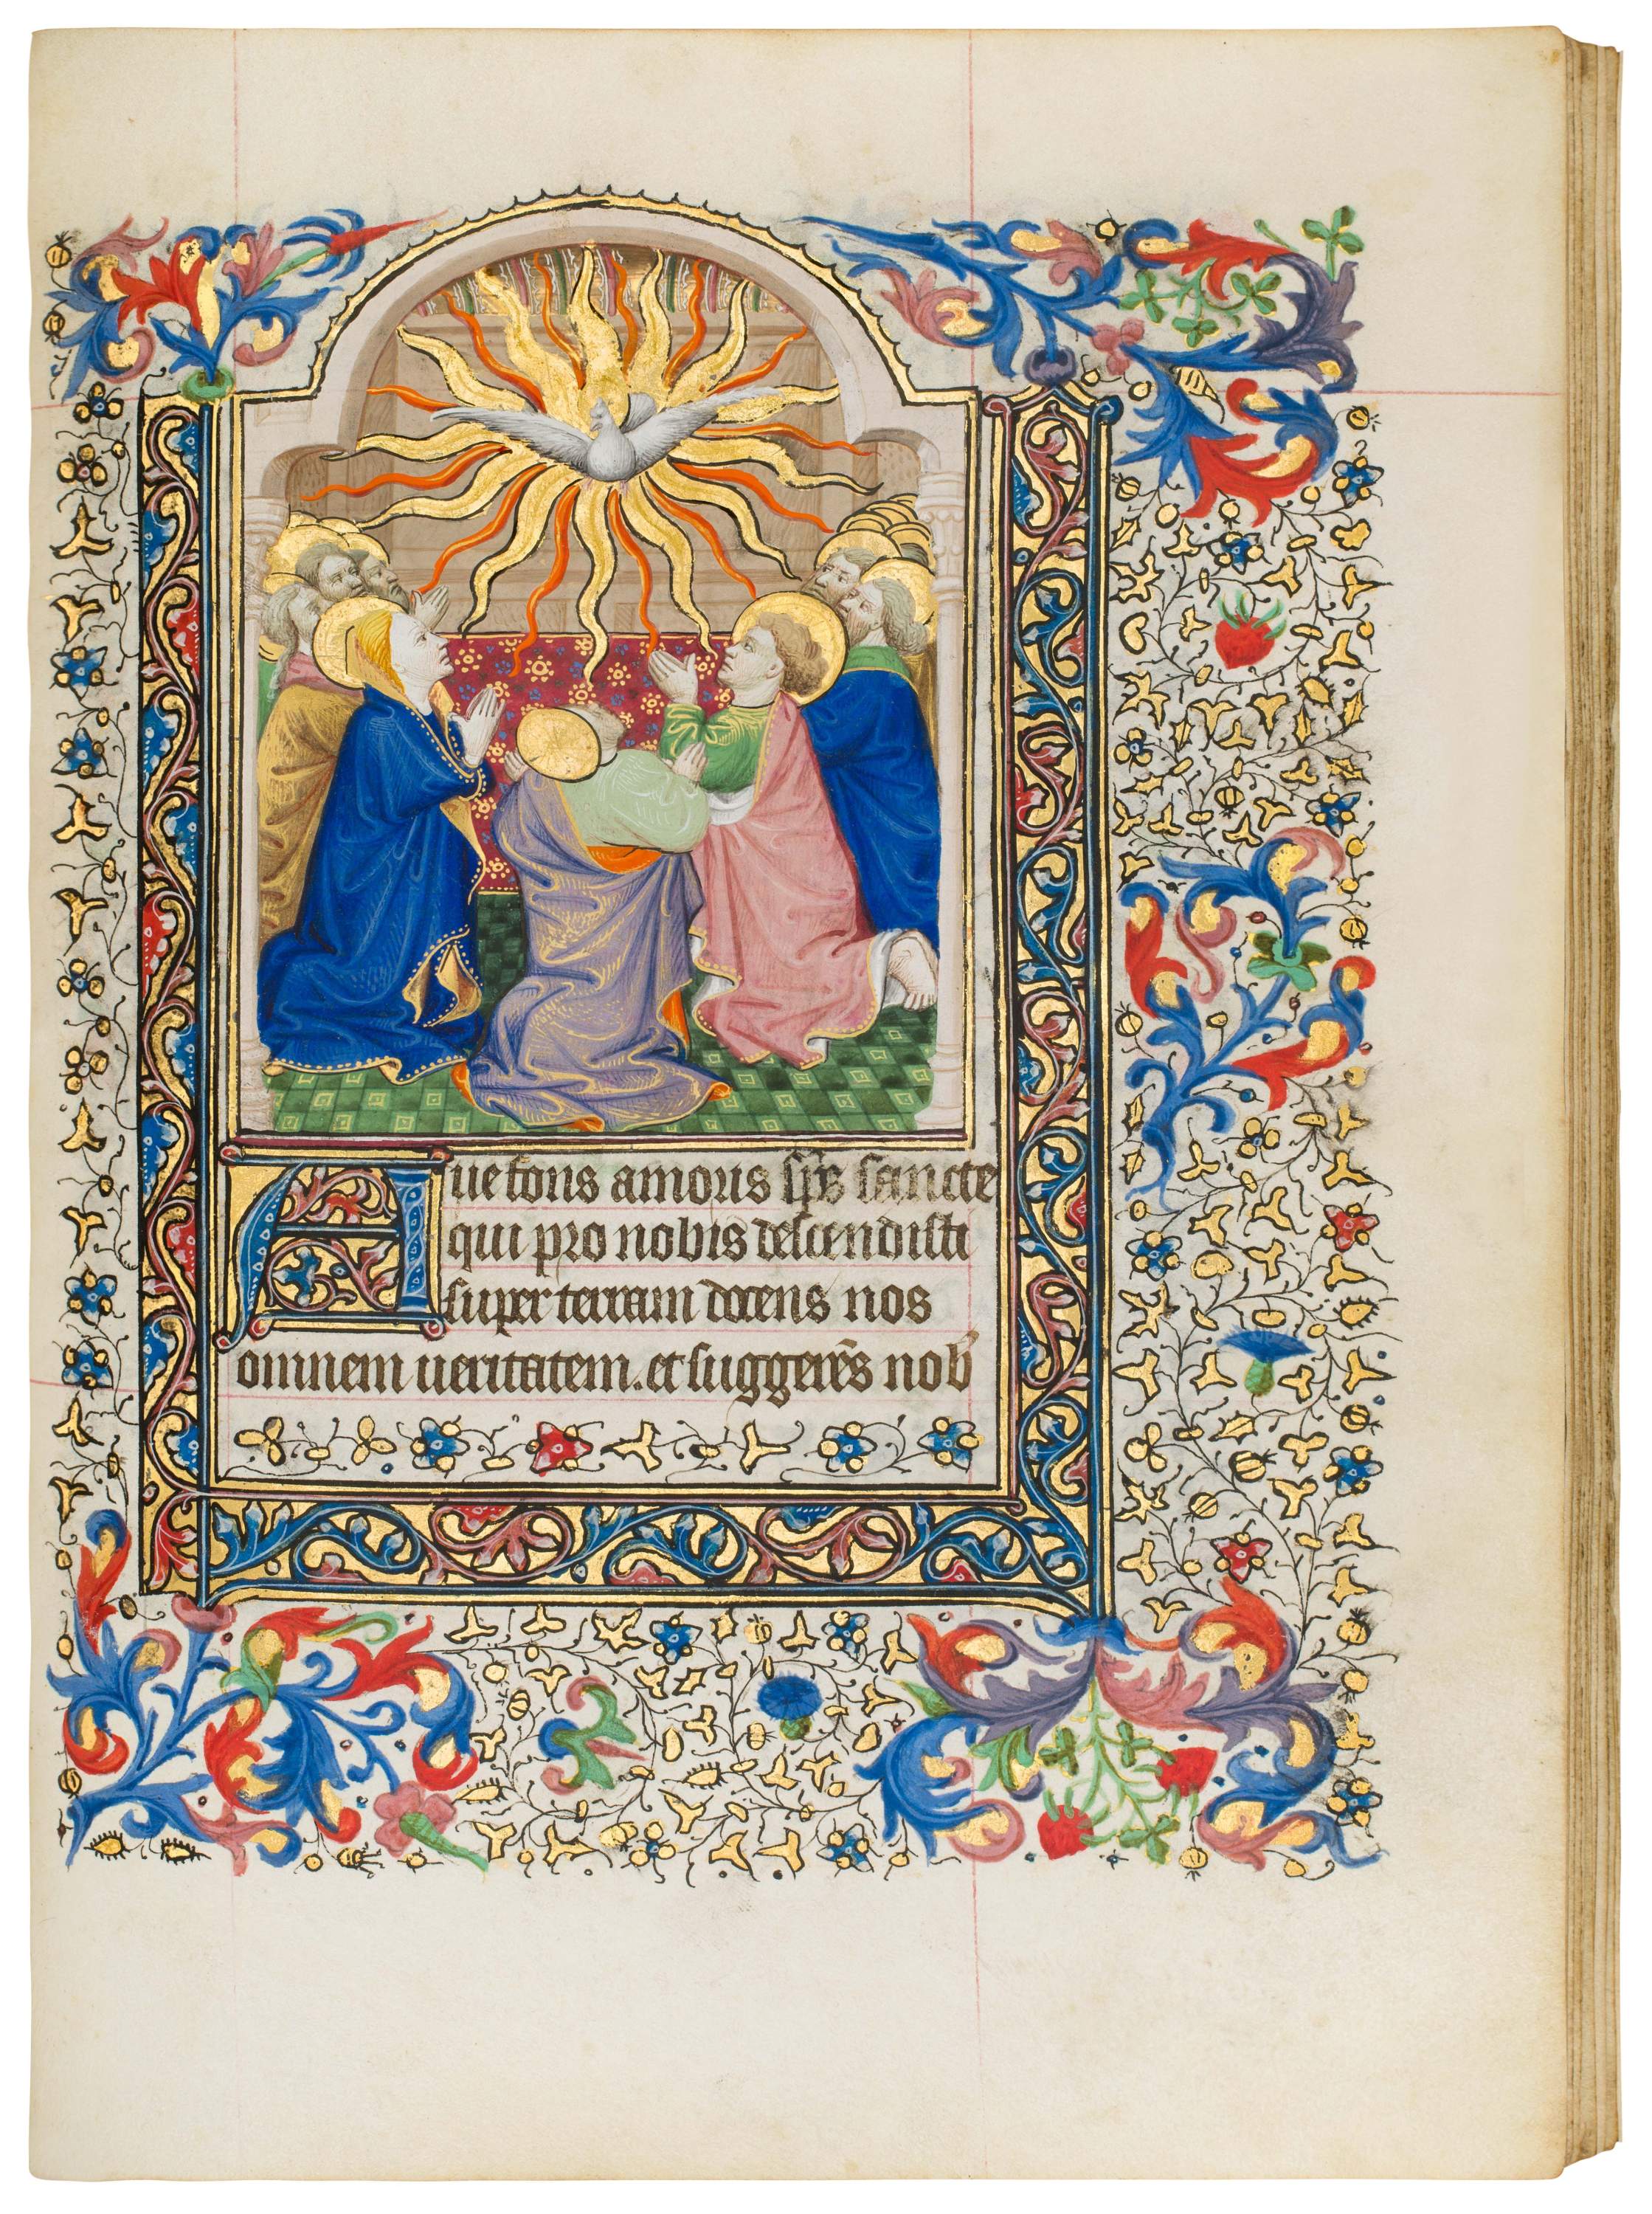 Aue fons amoris sp̄s sancte
qui pro nobis descendisti
super terram docens nos
omnem ueritatem. et suggerēs nob̄